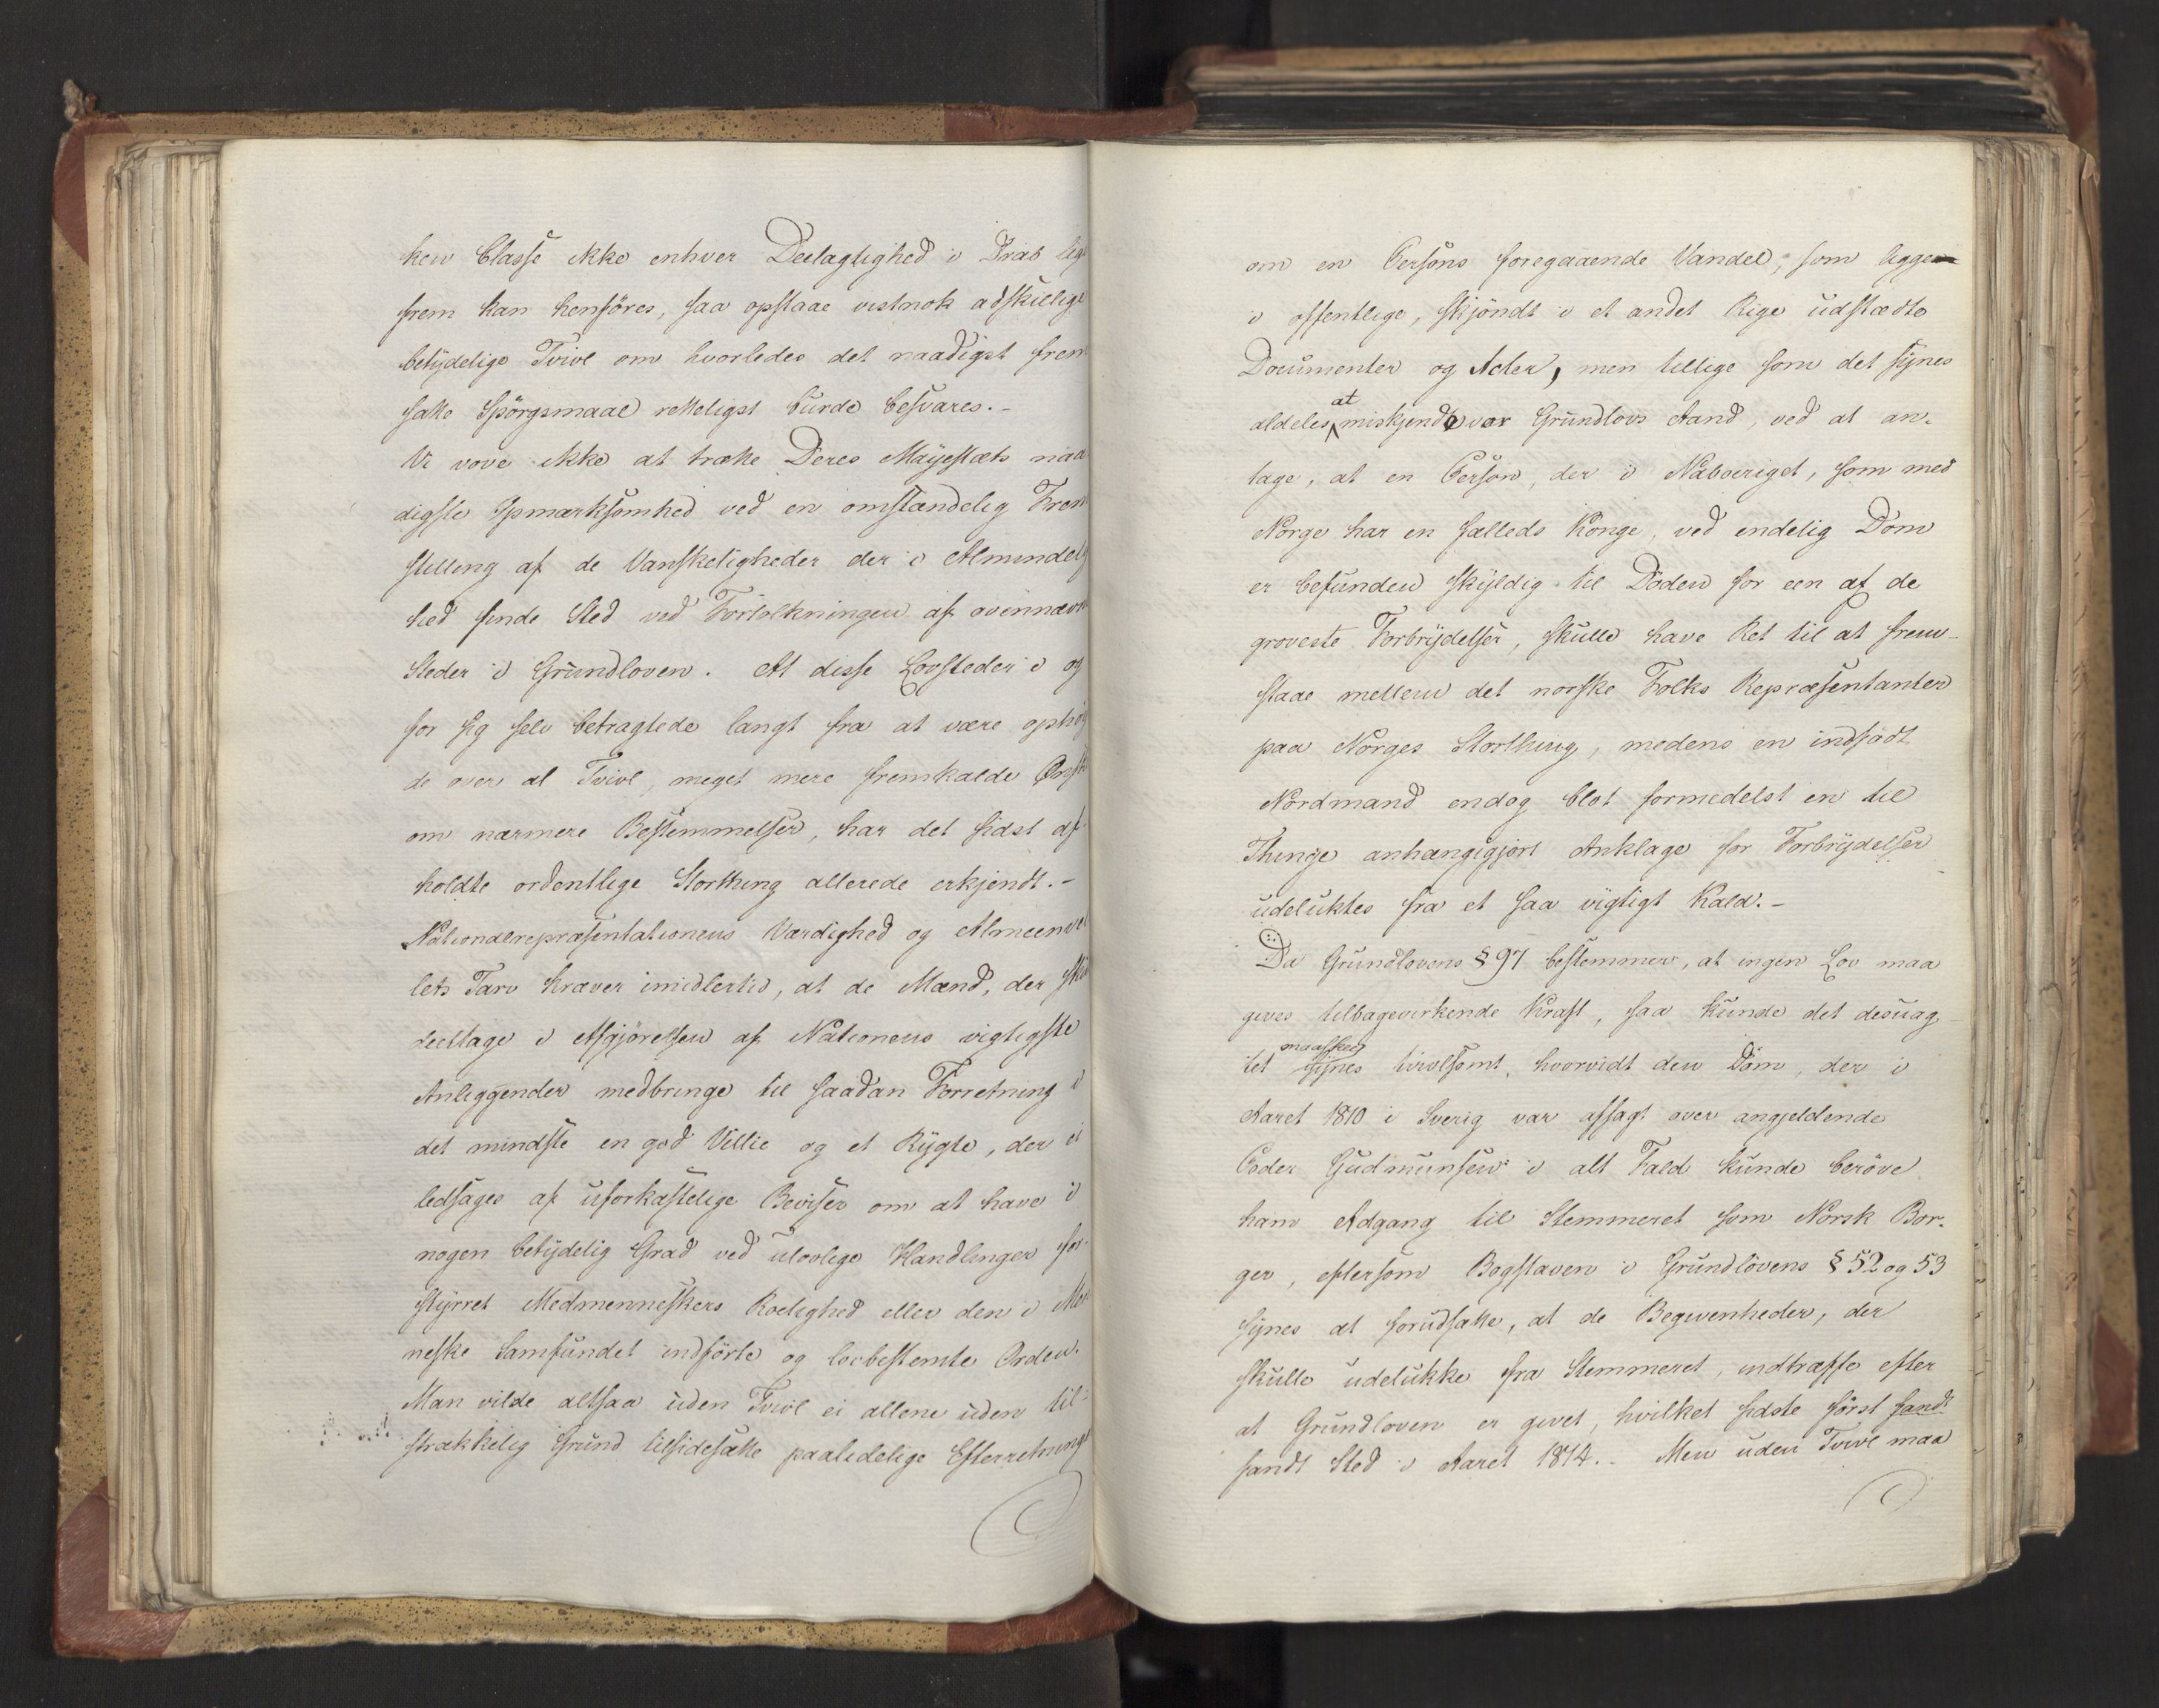 ken Classe ikke enhver Deelagtighed i Drab lige
frem kan henföres, saa opstaae vistnok adskillige
betÿdelige Tvivl om hvorledes det naadigst frem
satte Spörgsmaal retteligst burde besvares. -
Vi vove ikke at trække Deres Mayestæts naa
digste Opmærksomhed ved en omstændelig Frem
stilling af de Vanskeligheder der i Almindelig
hed finde Sted ved Fortolkningen af ovennævn
Steder i Grundloven. At disse Lovsteder i og
for sig selv betragtede langt fra at være ophöi
de over al Tvivl, meget mere fremkalde Ønske
om nærmere Bestemmelser, har det sidst af
holdte ordentlige Storthing allerede erkjendt. -
Nationalrepræsentationens Værdighed og Almeenvel
lets Tarv kræver imidlertid, at de Mænd, der skal
deeltage i Afgjörelsen af Nationens vigtigste
Anliggender medbringe til saadan Forretning i
det mindste en god Villie og et Rÿgte, der ei
ledsages af uforkastelige Beviser om at have i
nogen betÿdelig Grad ved ulovlige Handlinger for-
stÿrret Medmenneskers Roelighed eller den i Men
neske Samfundet indförte og lovbestemte Orden.
Man vilde altsaa uden Tvivl ei allene uden til-
strækkelig Grund tilsidesætte paalidelige Efterretninge
om en Persons foregaaende Vandel, som ligge
i offentlige, skjöndt i et andet Rige udstædte
Documenter og Acter, men tillige som det sÿnes
aldeles at miskjende vor Grundlovs Aand, ved at an-
tage, at en Person, der i Naboeriget, som med
Norge har en fælleds Konge, ved endelig Dom
er befunden skÿldig til Döden for een af de
groveste Forbrÿdelser, skulle have Ret til at frem-
staae mellem det norske Folks Repræsentanter
paa Norges Storthing, medens en indfödt
Nordmand endog blot formedelst en til
Thinge anhængigjort Anklage for Forbrÿdelser
udeluktes fra et saa vigtigt Kald. -
Da Grundlovens § 97 bestemmer, at ingen Lov maa
gives tilbagevirkende Kraft, saa kunde det desuag
tet maaskee sÿnes tvivlsomt, hvorvidt den Dom, der i
Aaret 1810 i Sverig var afsagt over angjeldende
Peder Gudmunsen i alt Fald kunde beröve
ham Adgang til Stemmeret som Norsk Bor-
ger, eftersom Bogstaven i Grundlovens § 52 og 53
sÿnes at forudsætte, at de Begivenheder, der
skulle udelukke fra Stemmeret, indtræffe efter
at Grundloven er givet, hvilket sidste först fandt
fandt Sted i Aaret 1814. - Men uden Tvivl maa